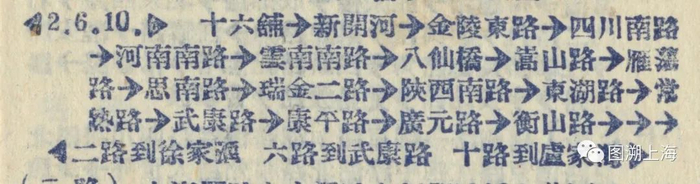 ◀2.6.10.▶ 十六舖→新開河→金陵東路→四川南路
→河南南路→雲南南路→八仙橋→嵩山路→雁蕩
路→思南路→瑞金二路→陝西南路→東湖路→常
熟路→武康路→康平路→廣元路→衡山路→→→→
◀二路到徐家滙 六路到武康路 十路到盧家
图溯上海